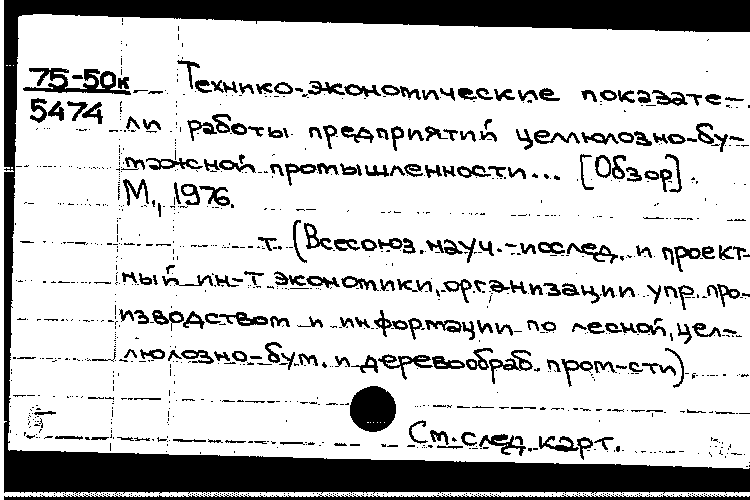 75-50к
5474
Технико-экономические показате-
ли работы предприятий целлюлозно-бу-
мажной промышленности... [Обзор].
М., 1976.
т. (Всесоюз. науч.-исслед. и проект-
ный ин-т экономики, организации упр. про-
изводством и информации по лесной, цел-
люлозно-бум. и деревообраб. пром-сти).
См. след. карт.